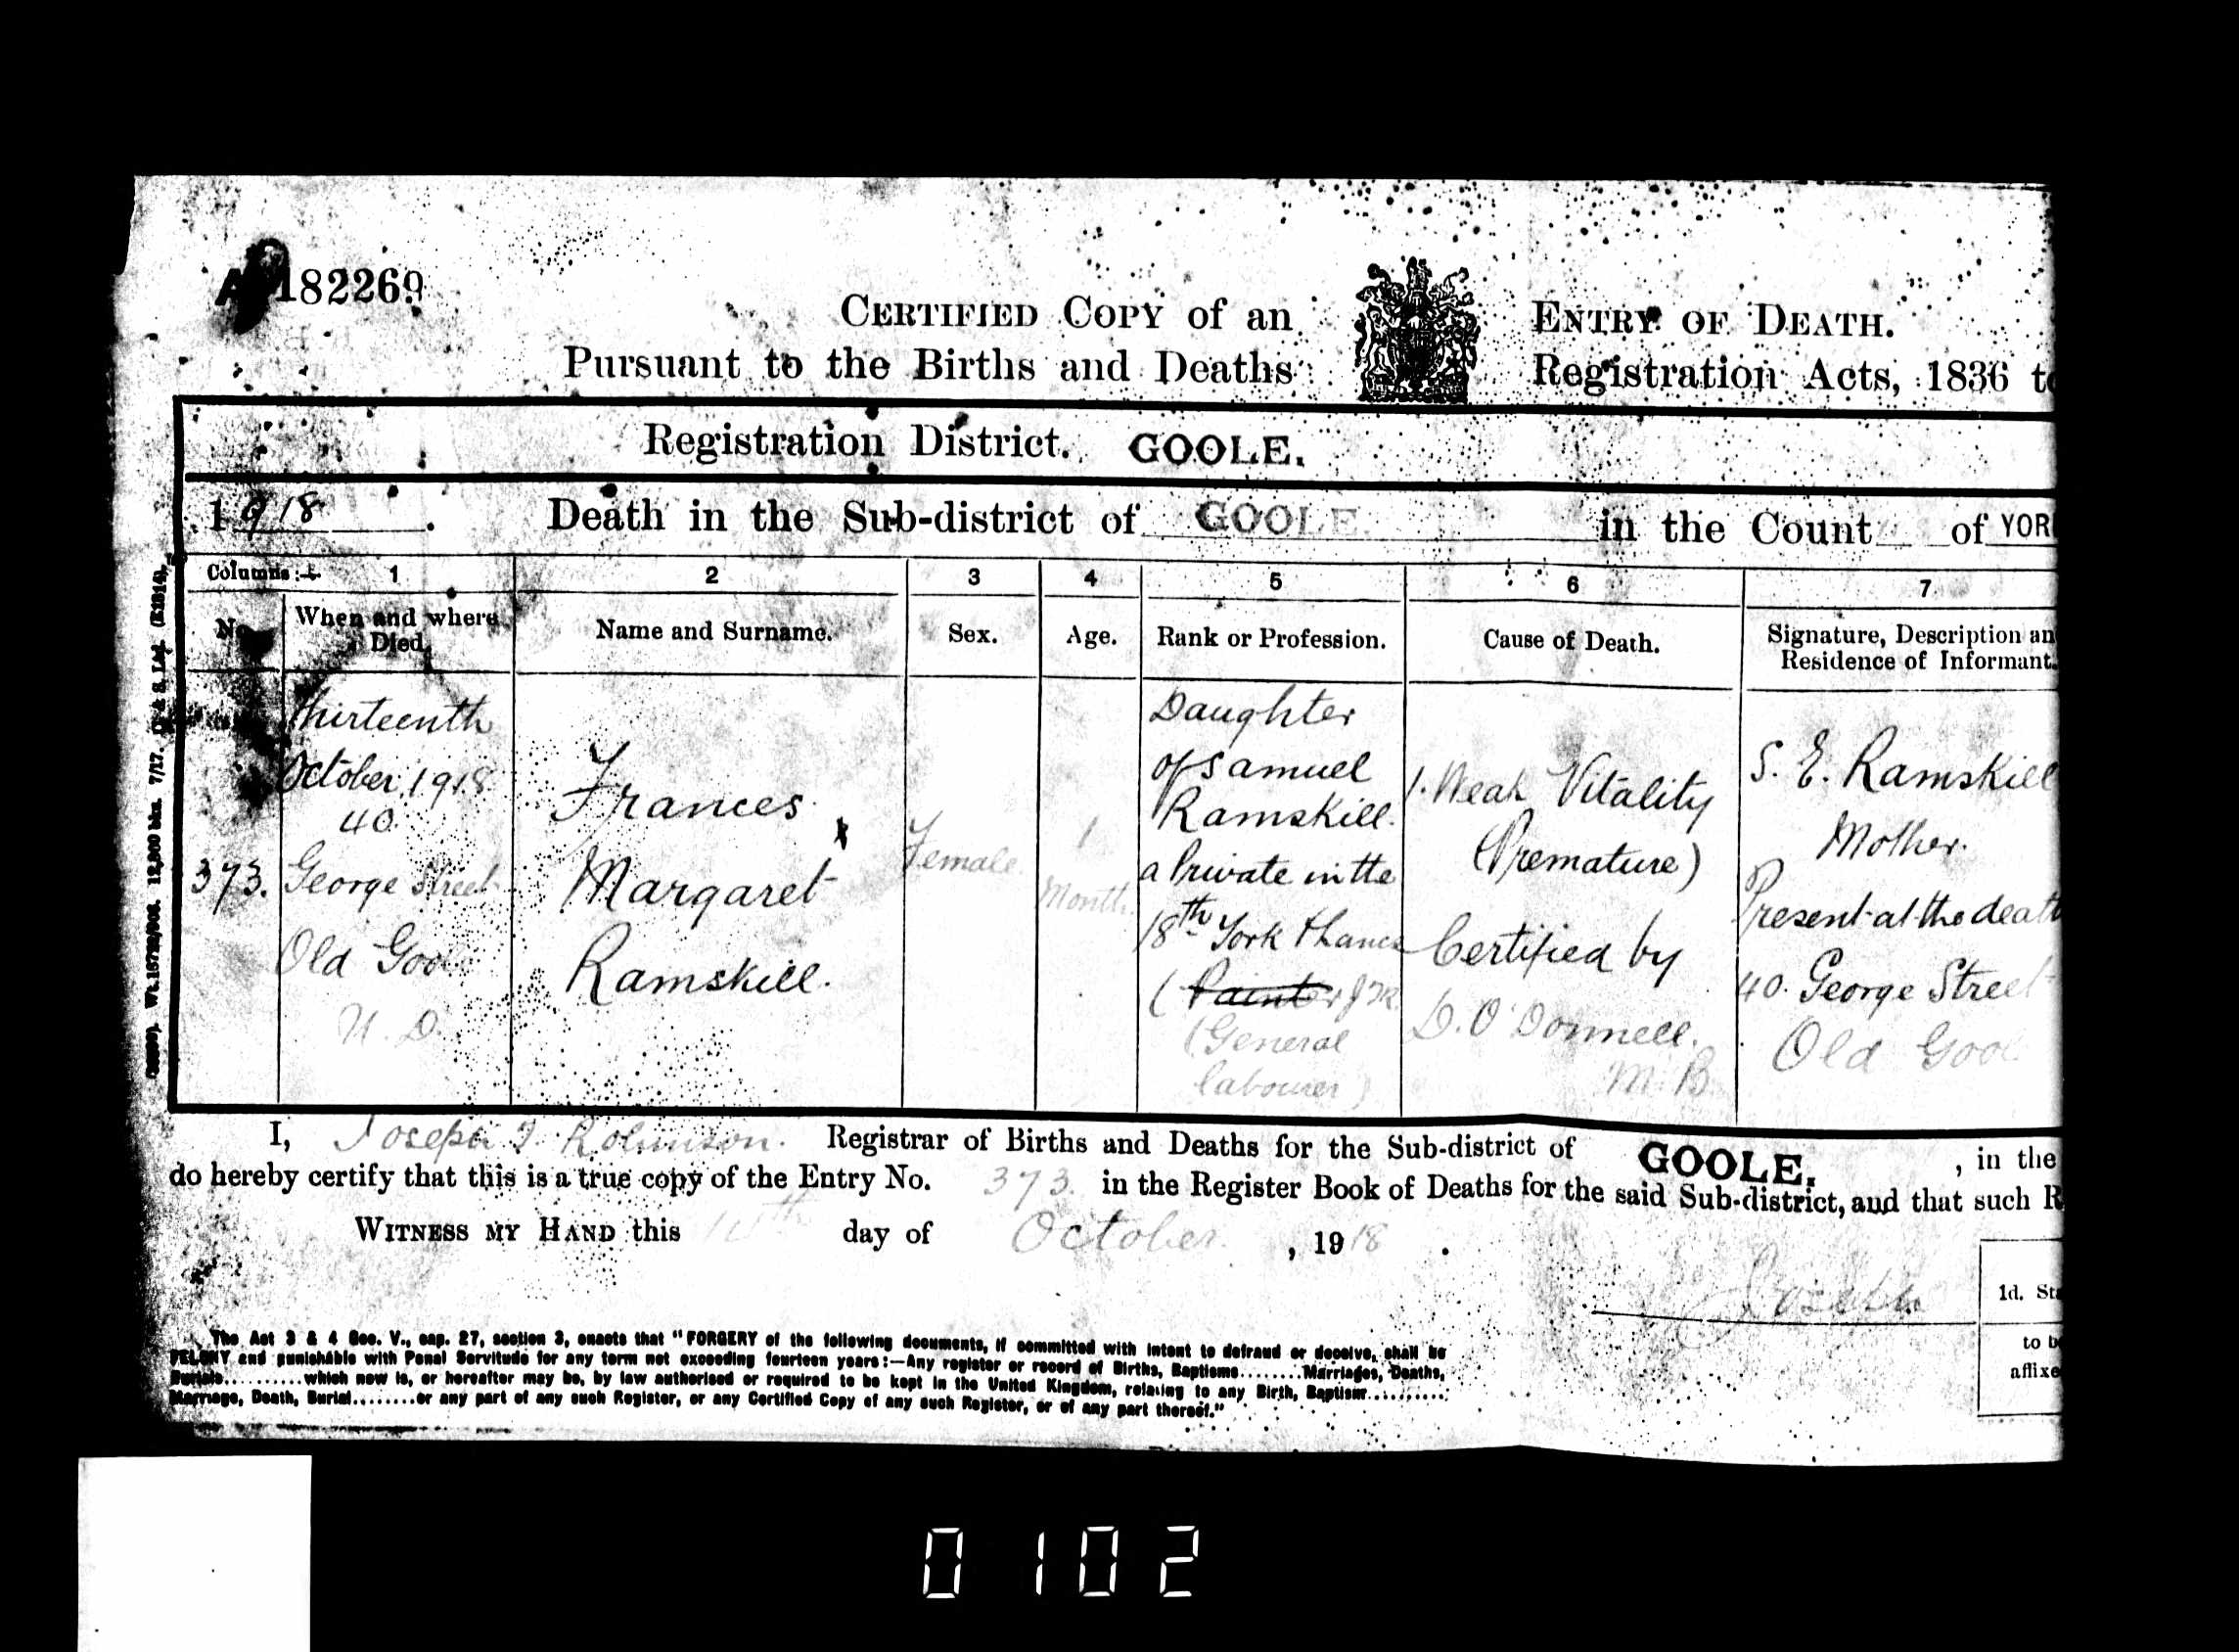 182269
CERTIFIED COPY of an ENTRY OF DEATH.
Pursuant to the Births and Deaths Registration Acts, 1836 to
Registration District. GOOLE.
1918. Death in the Sub-district of GOOLE in the Count of YOR
Columns:— 1 2 3 4 5 6 7
No. When and where Died. Name and Surname. Sex. Age. Rank or Profession. Cause of Death. Signature, Description an Residence of Informant.
373.
Thirteenth
October 1918
40.
George Street
Old Goole
U. D.
Frances
Margaret
Ramskill.
Female
1
Month
Daughter
of Samuel
Ramskill.
a Private in the
18th York & Lancs
(Painter J.R.
(General
labourer)
1. Weak Vitality
(Premature)
Certified by
D. O'Donnell.
M. B.
S. E. Ramskill
Mother.
Present at the death
40. George Street
Old Goole
I, Joseph T. Robinson. Registrar of Births and Deaths for the Sub-district of GOOLE, , in the
do hereby certify that this is a true copy of the Entry No. 373. in the Register Book of Deaths for the said Sub-district, and that such R
WITNESS MY HAND this 14th day of October , 1918 .
Joseph
1d. Sta
to b
affixe
The Act 3 & 4 Geo. V., cap. 27, section 3, enacts that "FORGERY of the following documents, if committed with intent to defraud or deceive, shall be
FELONY and punishable with Penal Servitude for any term not exceeding fourteen years:—Any register or record of Births, Baptisms........Marriages, Deaths,
Burials..........which now is, or hereafter may be, by law authorised or required to be kept in the United Kingdom, relating to any Birth, Baptism..........
Marriage, Death, Burial........or any part of any such Register, or any Certified Copy of any such Register, or of any part thereof."
0102